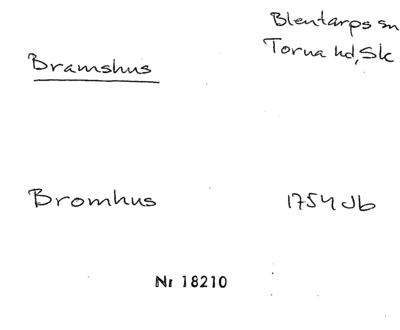 Blentarps sn
Torna hd, Sk
Bramshus
Bromhus 1754 Jb
Nr 18210